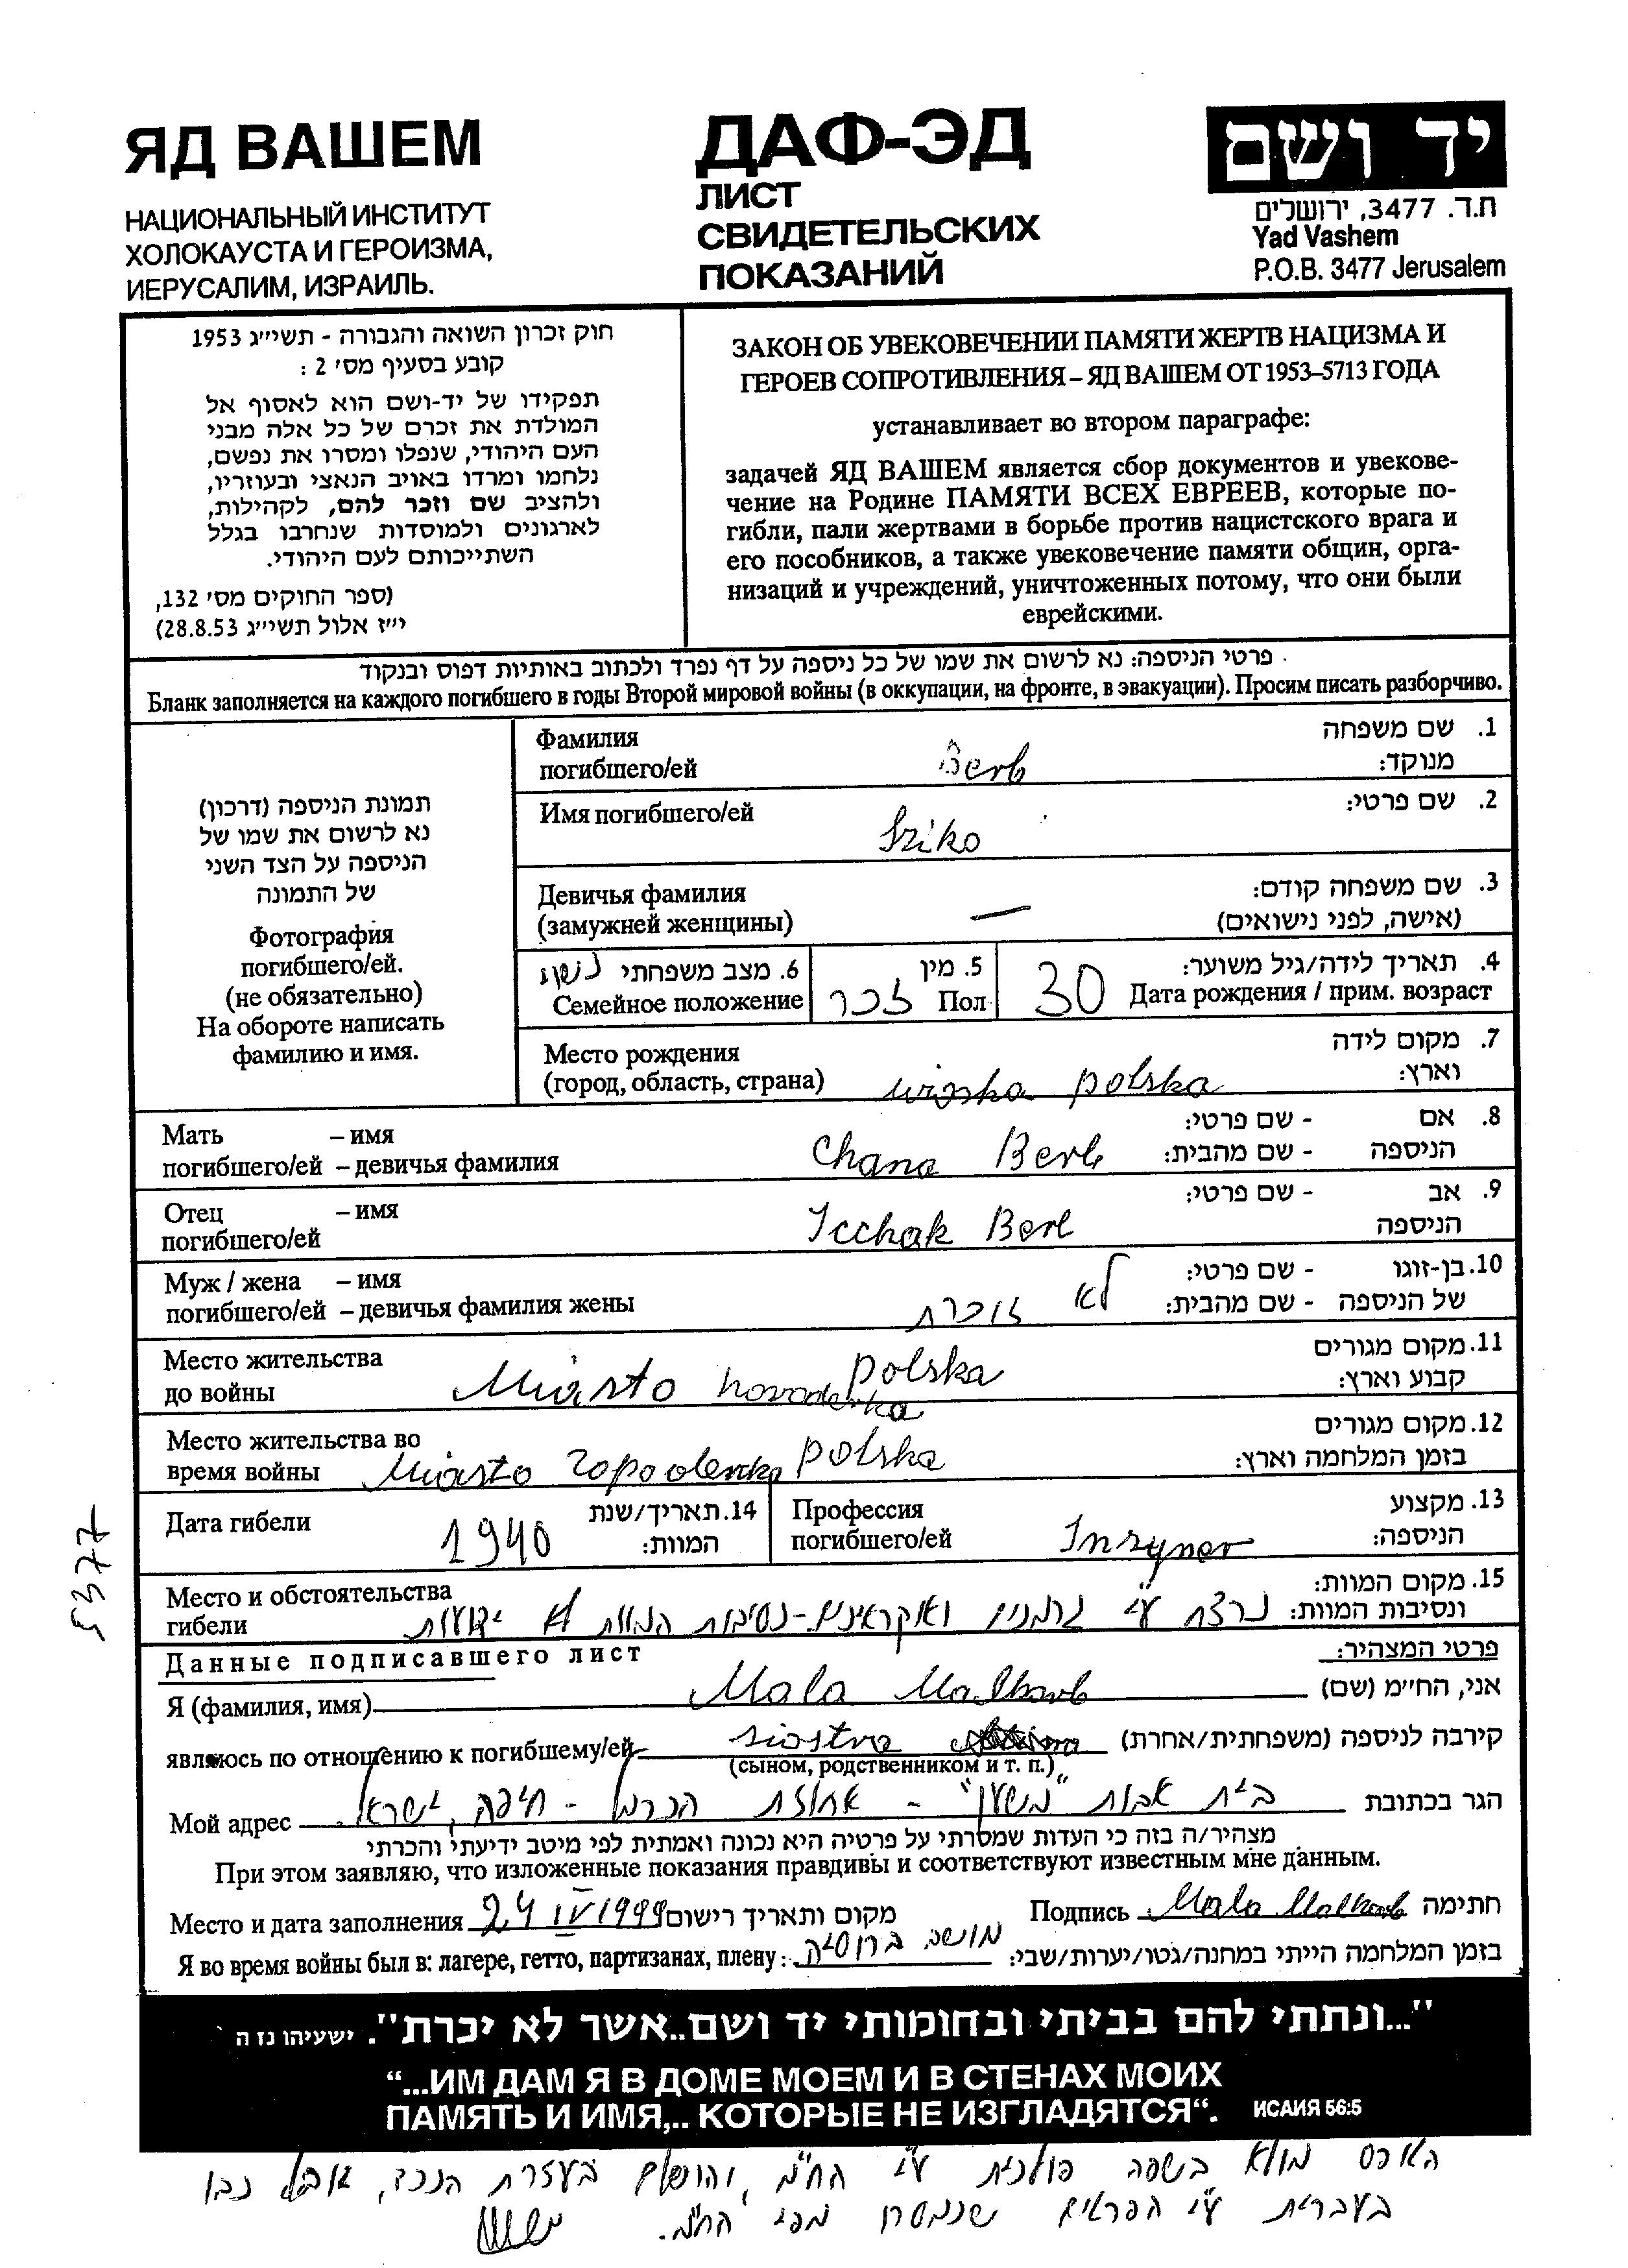 ЯД ВАШЕМ
НАЦИОНАЛЬНЫЙ ИНСТИТУТ
ХОЛОКАУСТА И ГЕРОИЗМА,
ИЕРУСАЛИМ, ИЗРАИЛЬ.
ДАФ-ЭД
ЛИСТ
СВИДЕТЕЛЬСКИХ
ПОКАЗАНИЙ
יד ושם
ת.ד. 3477, ירושלים
Yad Vashem
P.O.B. 3477 Jerusalem
חוק זכרון השואה והגבורה - תשי״ג 1953
קובע בסעיף מס׳ 2 :
תפקידו של יד-ושם הוא לאסוף אל
המולדת את זכרם של כל אלה מבני
העם היהודי, שנפלו ומסרו את נפשם,
נלחמו ומרדו באויב הנאצי ובעוזריו,
ולהציב שם וזכר להם, לקהילות,
לארגונים ולמוסדות שנחרבו בגלל
השתייכותם לעם היהודי.
(ספר החוקים מס׳ 132,
י״ז אלול תשי״ג 28.8.53)
ЗАКОН ОБ УВЕКОВЕЧЕНИИ ПАМЯТИ ЖЕРТВ НАЦИЗМА И
ГЕРОЕВ СОПРОТИВЛЕНИЯ – ЯД ВАШЕМ ОТ 1953–5713 ГОДА
устанавливает во втором параграфе:
задачей ЯД ВАШЕМ является сбор документов и увекове-
чение на Родине ПАМЯТИ ВСЕХ ЕВРЕЕВ, которые по-
гибли, пали жертвами в борьбе против нацистского врага и
его пособников, а также увековечение памяти общин, орга-
низаций и учреждений, уничтоженных потому, что они были
еврейскими.
פרטי הניספה: נא לרשום את שמו של כל ניספה על דף נפרד ולכתוב באותיות דפוס ובנקוד
Бланк заполняется на каждого погибшего в годы Второй мировой войны (в оккупации, на фронте, в эвакуации). Просим писать разборчиво.
תמונת הניספה (דרכון)
נא לרשום את שמו של
הניספה על הצד השני
של התמונה
Фотография
погибшего/ей.
(не обязательно)
На обороте написать
фамилию и имя.
Фамилия
погибшего/ей Berb
1. שם משפחה
מנוקד:
Имя погибшего/ей Sziko
2. שם פרטי:
Девичья фамилия
(замужней женщины) —
3. שם משפחה קודם:
(אישה, לפני נישואים)
4. תאריך לידה/גיל משוער:
Дата рождения / прим. возраст 30
5. מין
Пол זכר
6. מצב משפחתי נשוי
Семейное положение
Место рождения
(город, область, страна) wioska polska
7. מקום לידה
וארץ:
Мать – имя
погибшего/ей – девичья фамилия Chana Berb
8. אם - שם פרטי:
הניספה - שם מהבית:
Отец – имя
погибшего/ей Icchak Berb
9. אב - שם פרטי:
הניספה
Муж / жена – имя
погибшего/ей – девичья фамилия жены לא זוכרת
10. בן-זוגו - שם פרטי:
של הניספה - שם מהבית:
Место жительства
до войны Miasto polska
11. מקום מגורים
קבוע וארץ:
Место жительства во
время войны Miasto polska
12. מקום מגורים
בזמן המלחמה וארץ:
Дата гибели 1940
14. תאריך/שנת
המוות:
Профессия
погибшего/ей Inzyner
13. מקצוע
הניספה:
5377
Место и обстоятельства
гибели
15. מקום המוות:
ונסיבות המוות: נרצח ע״י גרמנים ואוקראינים-נסיבות המוות לא ידועות
Данные подписавшего лист
פרטי המצהיר:
Я (фамилия, имя) Mala Malkarb אני, החי״מ (שם)
являюсь по отношению к погибшему/ей siostra קירבה לניספה (משפחתית/אחרת)
(сыном, родственником и т. п.)
Мой адрес בית אבות "משען" - אחוזת הכרמל - חיפה, ישראל הגר בכתובת
מצהיר/ה בזה כי העדות שמסרתי על פרטיה היא נכונה ואמתית לפי מיטב ידיעתי והכרתי
При этом заявляю, что изложенные показания правдивы и соответствуют известным мне данным.
Место и дата заполнения 24 IV 1999 מקום ותאריך רישום Подпись Mala Malkarb חתימה
Я во время войны был в: лагере, гетто, партизанах, плену: מושב ברוסיה בזמן המלחמה הייתי במחנה/גטו/יערות/שבי:
"...ונתתי להם בביתי ובחומותי יד ושם..אשר לא יכרת". ישעיהו נז ה
“...ИМ ДАМ Я В ДОМЕ МОЕМ И В СТЕНАХ МОИХ
ПАМЯТЬ И ИМЯ,.. КОТОРЫЕ НЕ ИЗГЛАДЯТСЯ“. ИСАИЯ 56:5
הטופס מולא בשפה פולנית ע״י החי״מ, והושלם בעזרת הנכד, נבו
בעברית ע״י הפרטים שנמסרו מפי החי״מ.